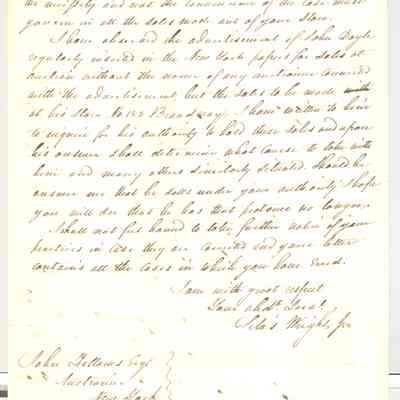 the necessity and not the convenience of the case must
govern in all the sales made out of your store.
I have observed the advertisement of John Doyle
regularly inserted in the New York papers for sales at
auction without the name of any auctioneer connected
with the advertisement, but the sales to be made
at his Store No 153 Broadway. I have written to him
to inquire for his authority to hold these sales and upon
his answer shall determine what course to take with
him and many others similarly situated. Should he
answer me that he sells under your authority I hope
you will see that he has that pretence no longer.
I shall not feel bound to take further notice of your
practices in case they are corrected and your letter
contains all the cases in which you have erred.
I am with great respect
Your obdt. Servt.
Silas Wright, Jr
John Fellows Esqr
Auctioneer
New York